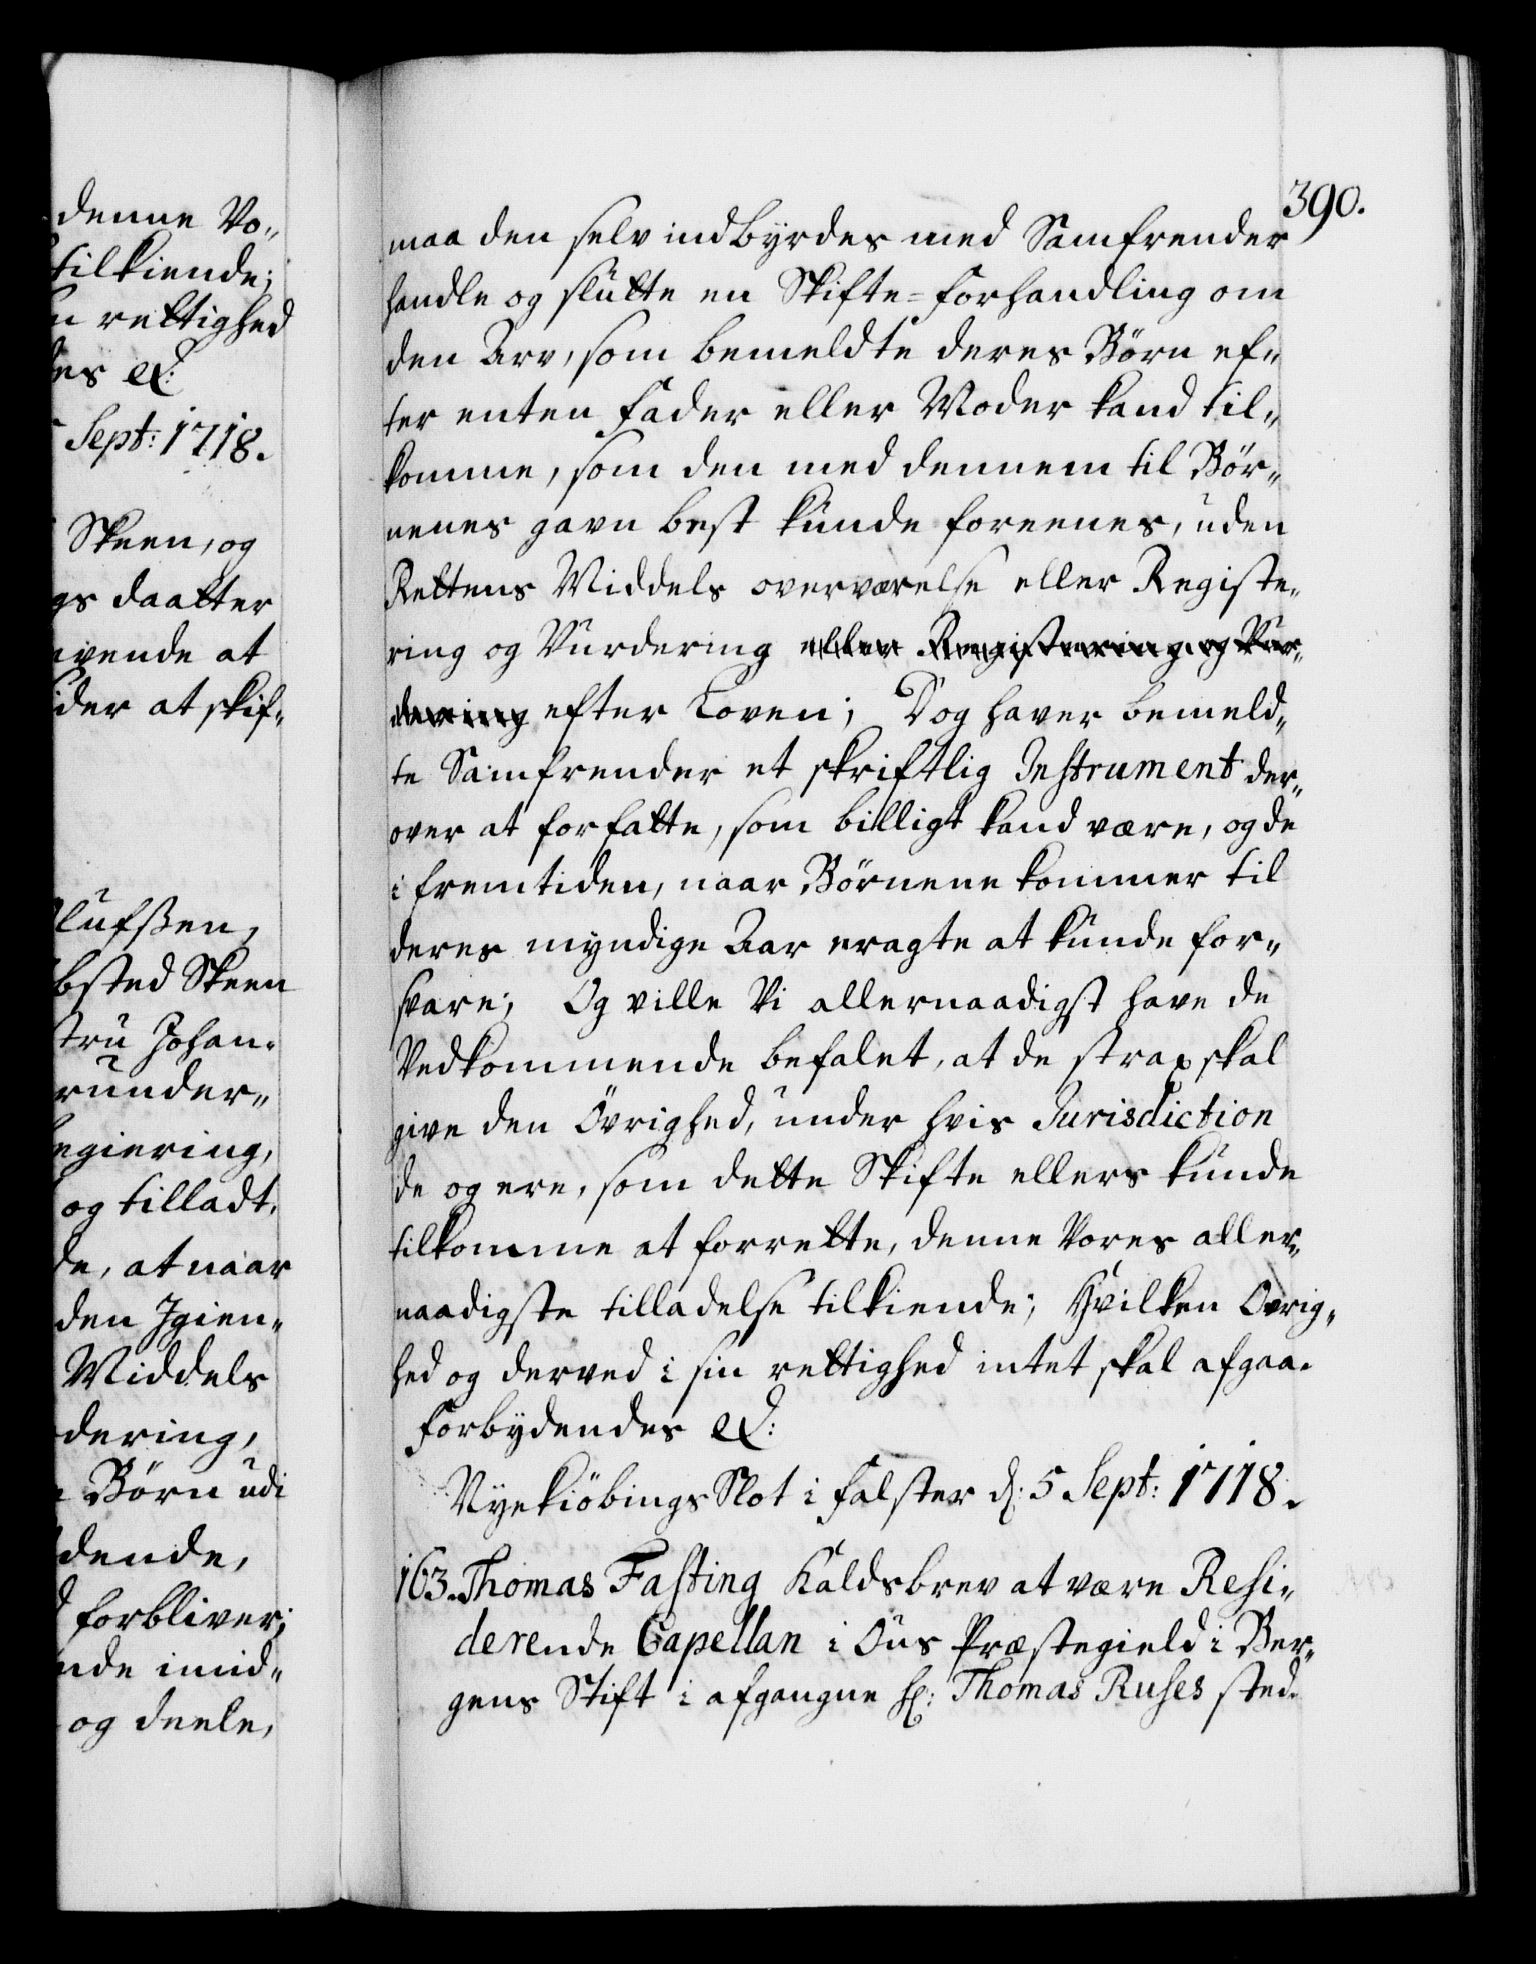 denne Vo„
tilkiende;
rettighed
es &:
Sept: 1718.
Skeen, og
gs daatter
vende at
ider at skif„
lufsen,
bsted Skeen
tru Johan„
runder„
egiering,
og tilladt,
de, at naar
den Igien„
Middels
dering,
Börn udi
dende,
forbliver;
nde imid„
og deele,
390.
maa den selv indbyrdes med Samfrender
handle og slutte en Skifte=forhandling om
den Arv, som bemeldte deres Börn ef„
ter enten Fader eller Moder kand til„
komme, som den med dennem til Bör„
nenes gavn best kunde foreenes, uden
Rettens Middels overværelse eller Registe„
ring og Vurdering eller Registering og Vur„
dering efter Loven; Dog haver bemeld„
te Samfrender et skriftlig Instrument der„
over at forfatte, som billigt kand være, og de
i fremtiden, naar Börnene kommer til
deres myndige Aar eragte at kunde for„
svare; Og ville Vi allernaadigst have de
Vedkommende befalet, at de strax skal
give den Övrighed, under hvis Jurisdiction
de og ere, som dette Skifte ellers kunde
tilkomme at forrette, denne Vores aller„
naadigste tilladelse tilkiende; Hvilken Ovrig„
hed og derved i sin rettighed intet skal afgaa.
Forbydendes &:
Nyekiöbings Slot i Falster d: 5 Sept: 1718.
163. Thomas Fasting Kaldsbrev at være Resi„
derende Capellan i Ous Præstegield i Ber„
gens Stift i afgangne Hr: Thomas Ruses sted.